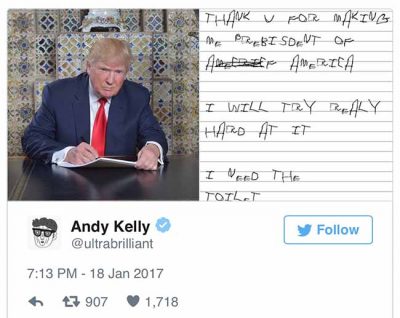 THANK U FOR MAKING
ME PREBISDENT OF
AMERICA
I WILL TRY REALY
HARD AT IT
I NEED THE
TOILET
Andy Kelly
@ultrabrilliant
Follow
7:13 PM - 18 Jan 2017
907 1,718